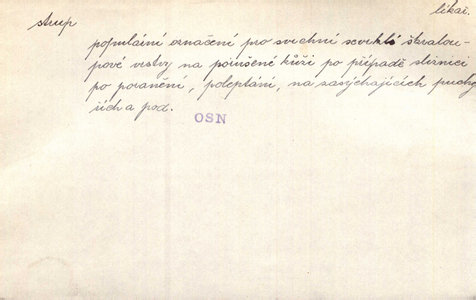 lékař.
strup
populární označení pro svrchní scvrklé škralou-
pové vrstvy na porušené kůži po případě sliznici
po poranění, poleptání, na zasýchajících puchý
řích a pod.
OSN